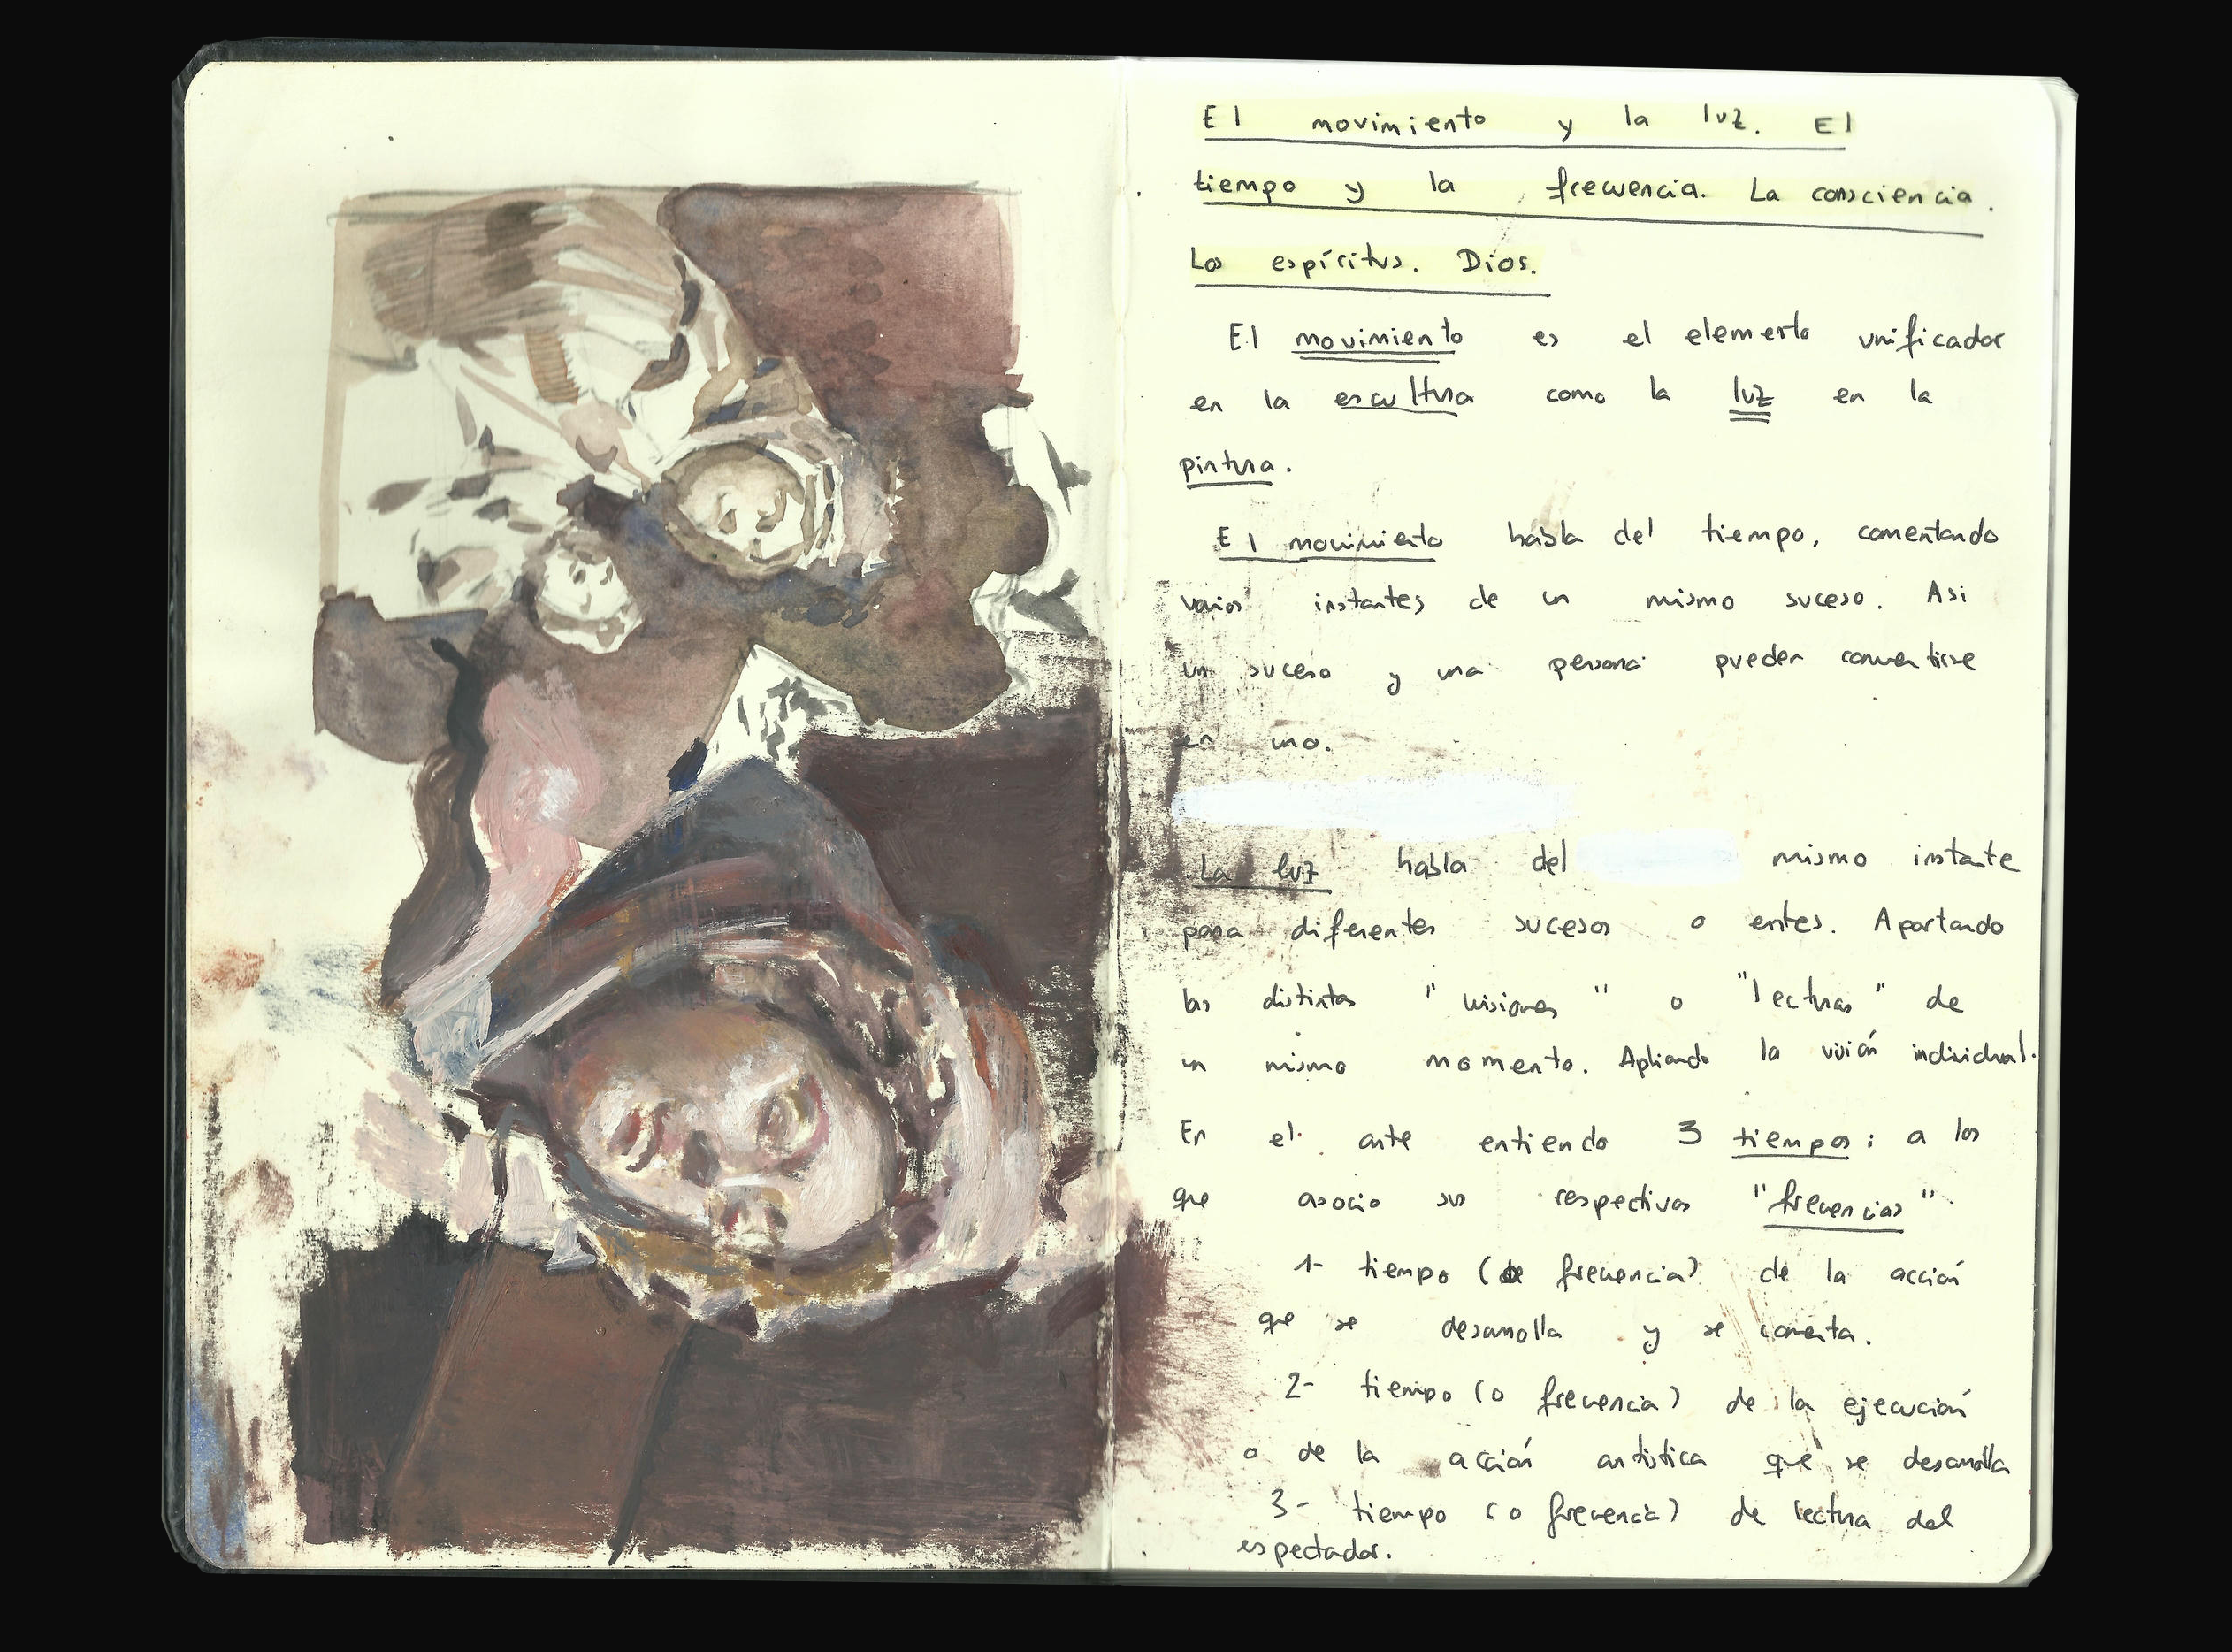 El movimiento y la luz. El
tiempo y la frecuencia. La consciencia.
Los espíritus. Dios.
El movimiento es el elemento unificador
en la escultura como la luz en la
pintura.
El movimiento habla del tiempo, comentando
varios instantes de un mismo suceso. Asi
un suceso y una persona pueden convertirse
en uno.
La luz habla del mismo instante
para diferentes sucesos o entes. Aportando
las distintas "visiones" o "lecturas" de
un mismo momento. Apliando la visión individual.
En el arte entiendo 3 tiempos: a los
que asocio sus respectivas "frecuencias"
1- tiempo (o frecuencia) de la acción
que se desarrolla y se comenta.
2- tiempo (o frecuencia) de la ejecución
o de la acción artistica que se desarrolla
3- tiempo (o frecuencia) de lectura del
espectador.